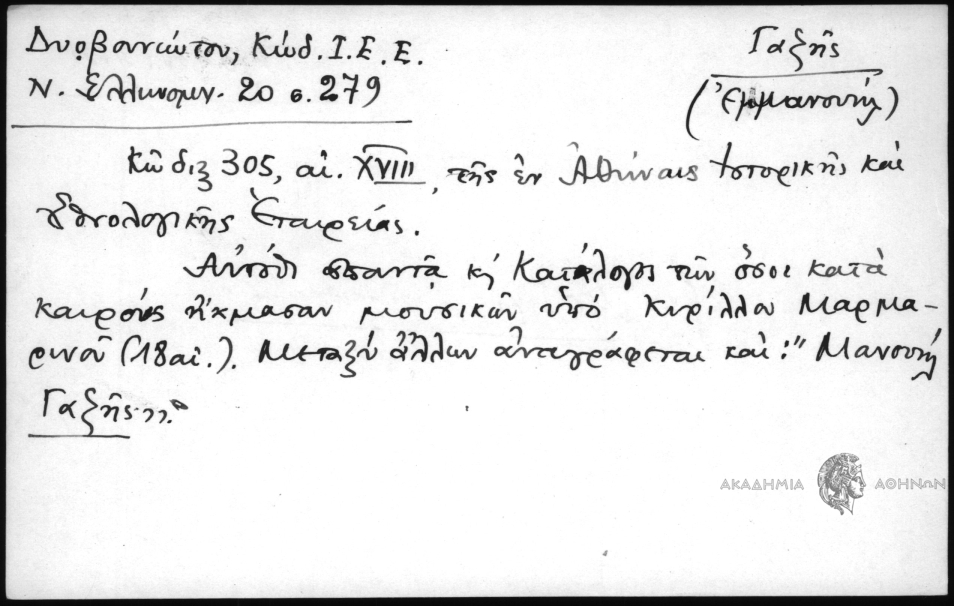 Δυοβουνιώτου, Κώδ. Ι.Ε.Ε.
Ν. Ἑλληνομν. 20 σ. 279
Γαζῆς
(Ἐμμανουὴλ)
Κῶδιξ 305, αἰ. XVIII, τῆς ἐν Ἀθήναις Ἱστορικῆς καὶ
Ἐθνολογικῆς Ἑταιρείας.
Αὐτόθι ἀπαντᾷ κ̣ Κατάλογος τῶν ὅσοι κατὰ
καιροὺς ἤκμασαν μουσικῶν ὑπὸ Κυρίλλου Μαρμα-
ρινοῦ (18 αἰ.). Μεταξὺ ἄλλων ἀναγράφεται καὶ: "Μανουὴλ
Γαζῆς".
ΑΚΑΔΗΜΙΑ ΑΘΗΝΩΝ